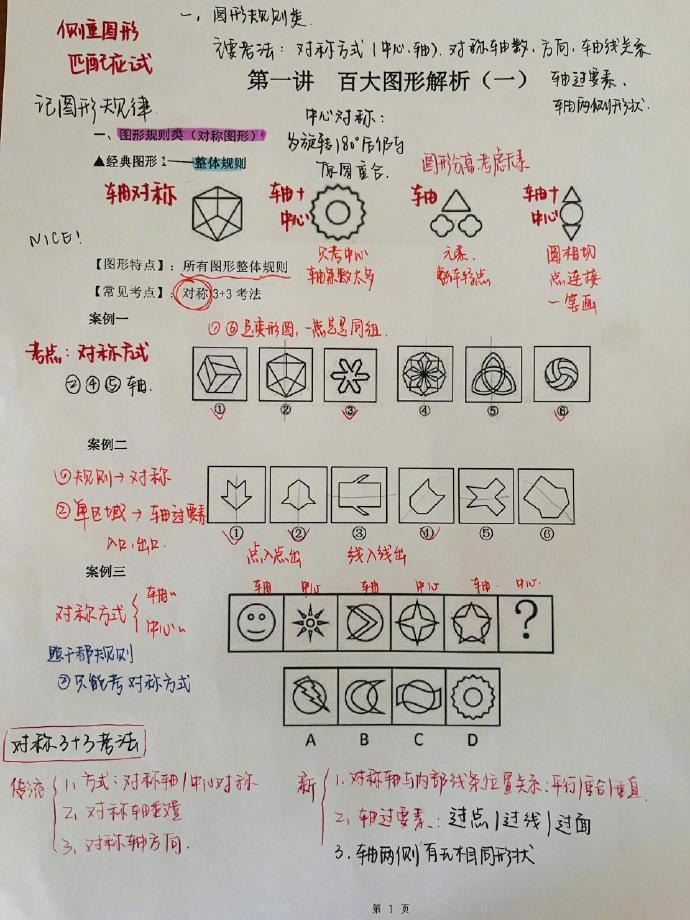 侧重图形
匹配应试
一，图形规则类
主要考法：对称方式(中心、轴)、对称轴数、方向、轴线关系
轴过要素、
轴两侧形状.
第一讲 百大图形解析（一）
记图形规律.
中心对称：
为旋转180°后仍与
原图重合.
一、图形规则类（对称图形）
▲经典图形1——整体规则
图形分离:考虑元素
轴对称
轴+
中心
轴
轴+
中心
NICE!
只考中心
轴条数太多
元素.
整体特点
圆相切
点连接
一笔画
【图形特点】：所有图形整体规则
【常见考点】：对称3+3考法
案例一
①⑥是变形图，一点是同组.
考点：对称方式
②④⑤轴.
① ② ③ ④ ⑤ ⑥
案例二
①规则→对称
②单区域→轴过要素
入口,出口.
① ② ③ ④ ⑤ ⑥
点入点出 线入线出
案例三
轴 中心 轴 中心 轴 中心
对称方式
轴
中心
题干都规则
②只能考对称方式
?
A B C D
对称3+3考法
传统
1、方式：对称轴/中心对称
2、对称轴数量
3、对称轴方向.
新
1、对称轴与内部线条位置关系:平行/重合/垂直
2、轴过要素：过点/过线/过面
3、轴两侧有无相同形状
第 1 页